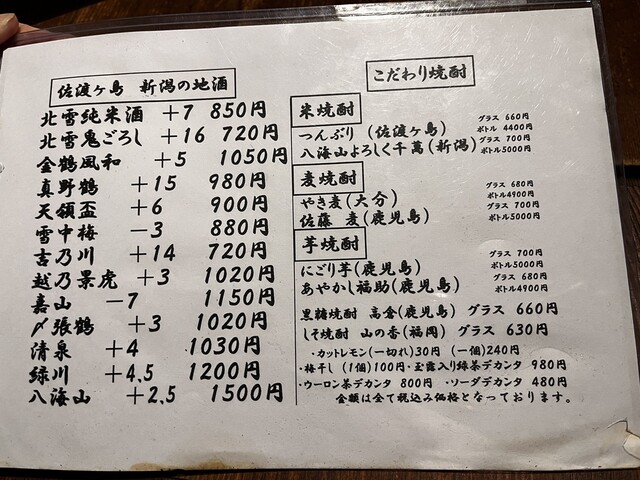 佐渡ヶ島 新潟の地酒
北雪純米酒 +7 850円
北雪鬼ごろし +16 720円
金鶴風和 +5 1050円
真野鶴 +15 980円
天領盃 +6 900円
雪中梅 -3 880円
吉乃川 +14 720円
越乃景虎 +3 1020円
嘉山 -7 1150円
〆張鶴 +3 1020円
清泉 +4 1030円
緑川 +4.5 1200円
八海山 +2.5 1500円
こだわり焼酎
米焼酎
つんぶり(佐渡ヶ島) グラス 660円
ボトル 4400円
八海山よろしく千萬(新潟) グラス 700円
ボトル5000円
麦焼酎
やき麦(大分) グラス 680円
ボトル4900円
佐藤 麦(鹿児島) グラス 700円
ボトル5000円
芋焼酎
にごり芋(鹿児島) グラス 700円
ボトル5000円
あやかし福助(鹿児島) グラス 680円
ボトル4900円
黒糖焼酎 高倉(鹿児島) グラス 660円
しそ焼酎 山の香(福岡) グラス 630円
・カットレモン(一切れ)30円 (一個)240円
・梅干し(1個)100円・玉露入り緑茶デカンタ 980円
・ウーロン茶デカンタ 800円 ・ソーダデカンタ 480円
金額は全て税込み価格となっております。